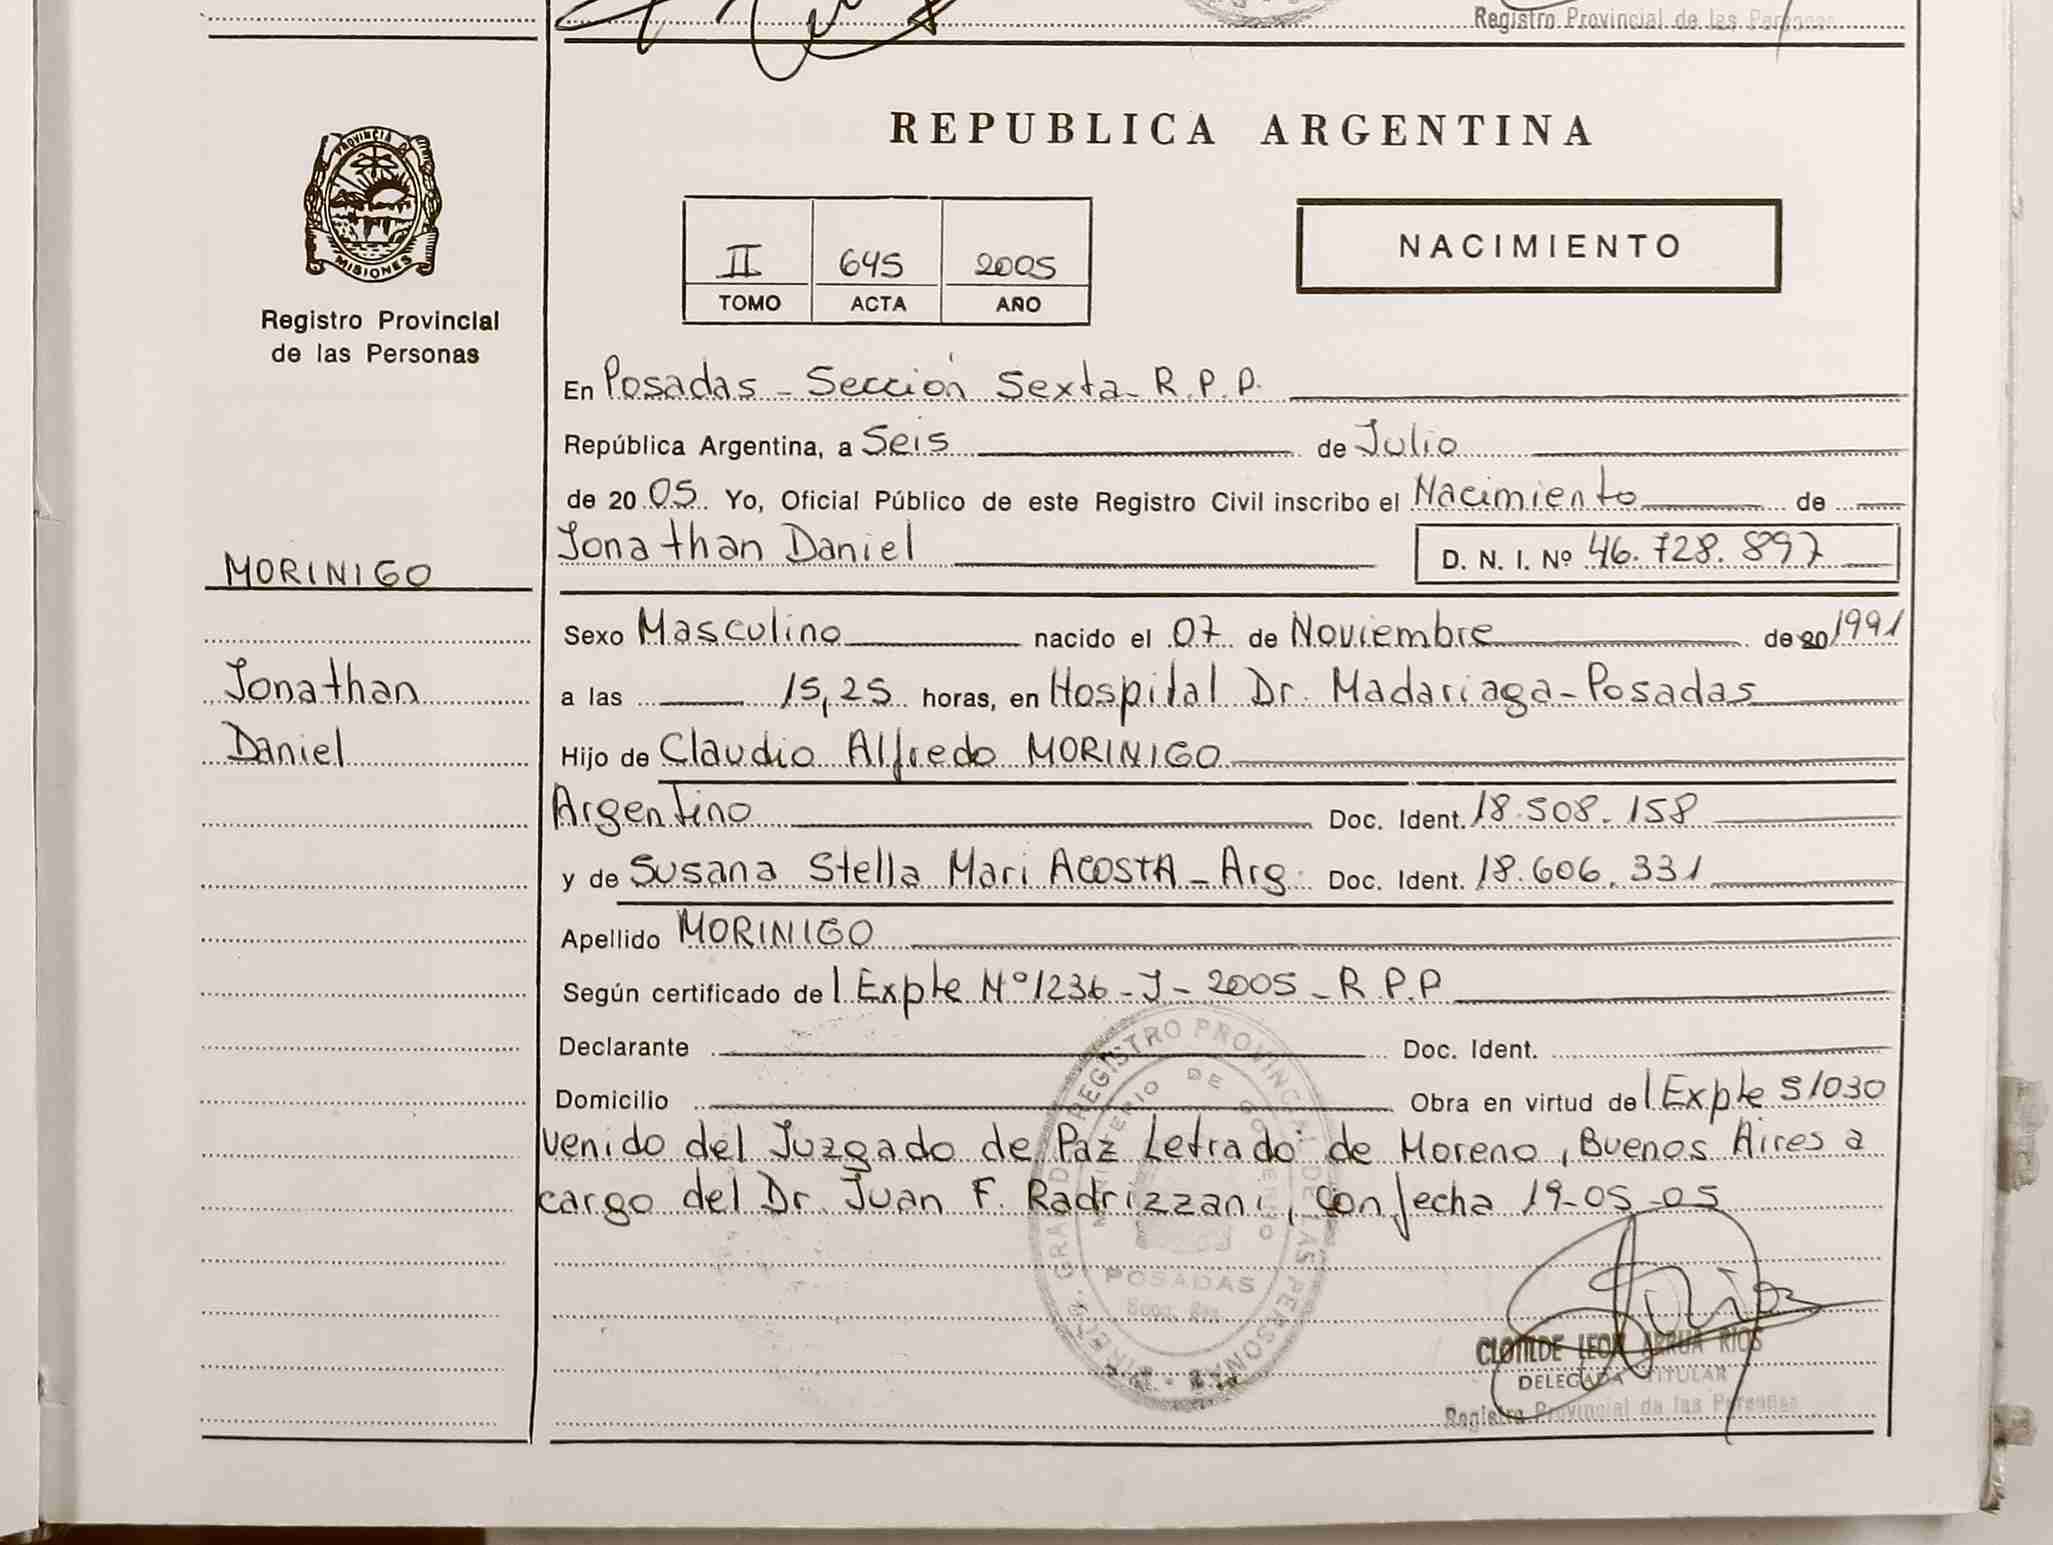 Registro Provincial de las Personas
PROVINCIA DE
MISIONES
Registro Provincial
de las Personas
REPUBLICA ARGENTINA
II 645 2005
TOMO ACTA AÑO
NACIMIENTO
En Posadas - Sección Sexta - R.P.P.
República Argentina, a Seis de Julio
de 20 05 Yo, Oficial Público de este Registro Civil inscribo el Nacimiento de
Jonathan Daniel D. N. I. Nº 46.728.897
MORINIGO
Jonathan
Daniel
Sexo Masculino nacido el 07 de Noviembre de 20 1991
a las 15,25 horas, en Hospital Dr. Madariaga - Posadas
Hijo de Claudio Alfredo MORINIGO
Argentino Doc. Ident. 18.508.158
y de Susana Stella Mari ACOSTA - Arg. Doc. Ident. 18.606.331
Apellido MORINIGO
Según certificado de l Expte Nº 1236 - J - 2005 - R.P.P
Declarante Doc. Ident.
Domicilio Obra en virtud de l Expte 51030
venido del Juzgado de Paz Letrado de Moreno, Buenos Aires a
cargo del Dr. Juan F. Radrizzani, con fecha 19-05-05
REGISTRO PROVINCIAL DE LAS PERSONAS
MINISTERIO DE GOBIERNO
POSADAS
CLOTILDE LEON ARRUA RIOS
DELEGADA TITULAR
Registro Provincial de las Personas